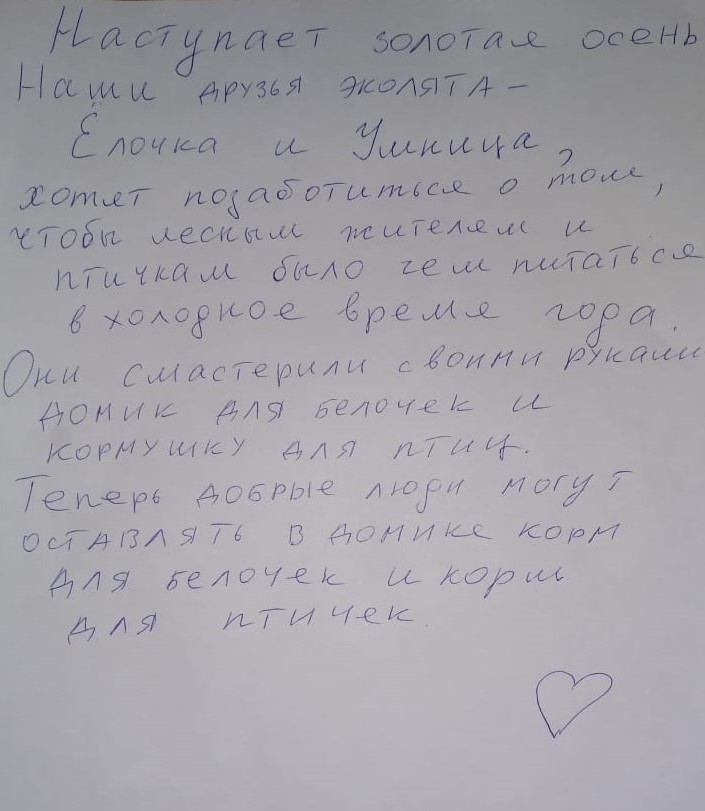 Наступает золотая осень
Наши друзья эколята -
Ёлочка и Умница,
хотят позаботиться о том,
чтобы лесным жителям и
птичкам было чем питаться
в холодное время года.
Они смастерили своими руками
домик для белочек и
кормушку для птиц.
Теперь добрые люди могут
оставлять в домике корм
для белочек и корм
для птичек.